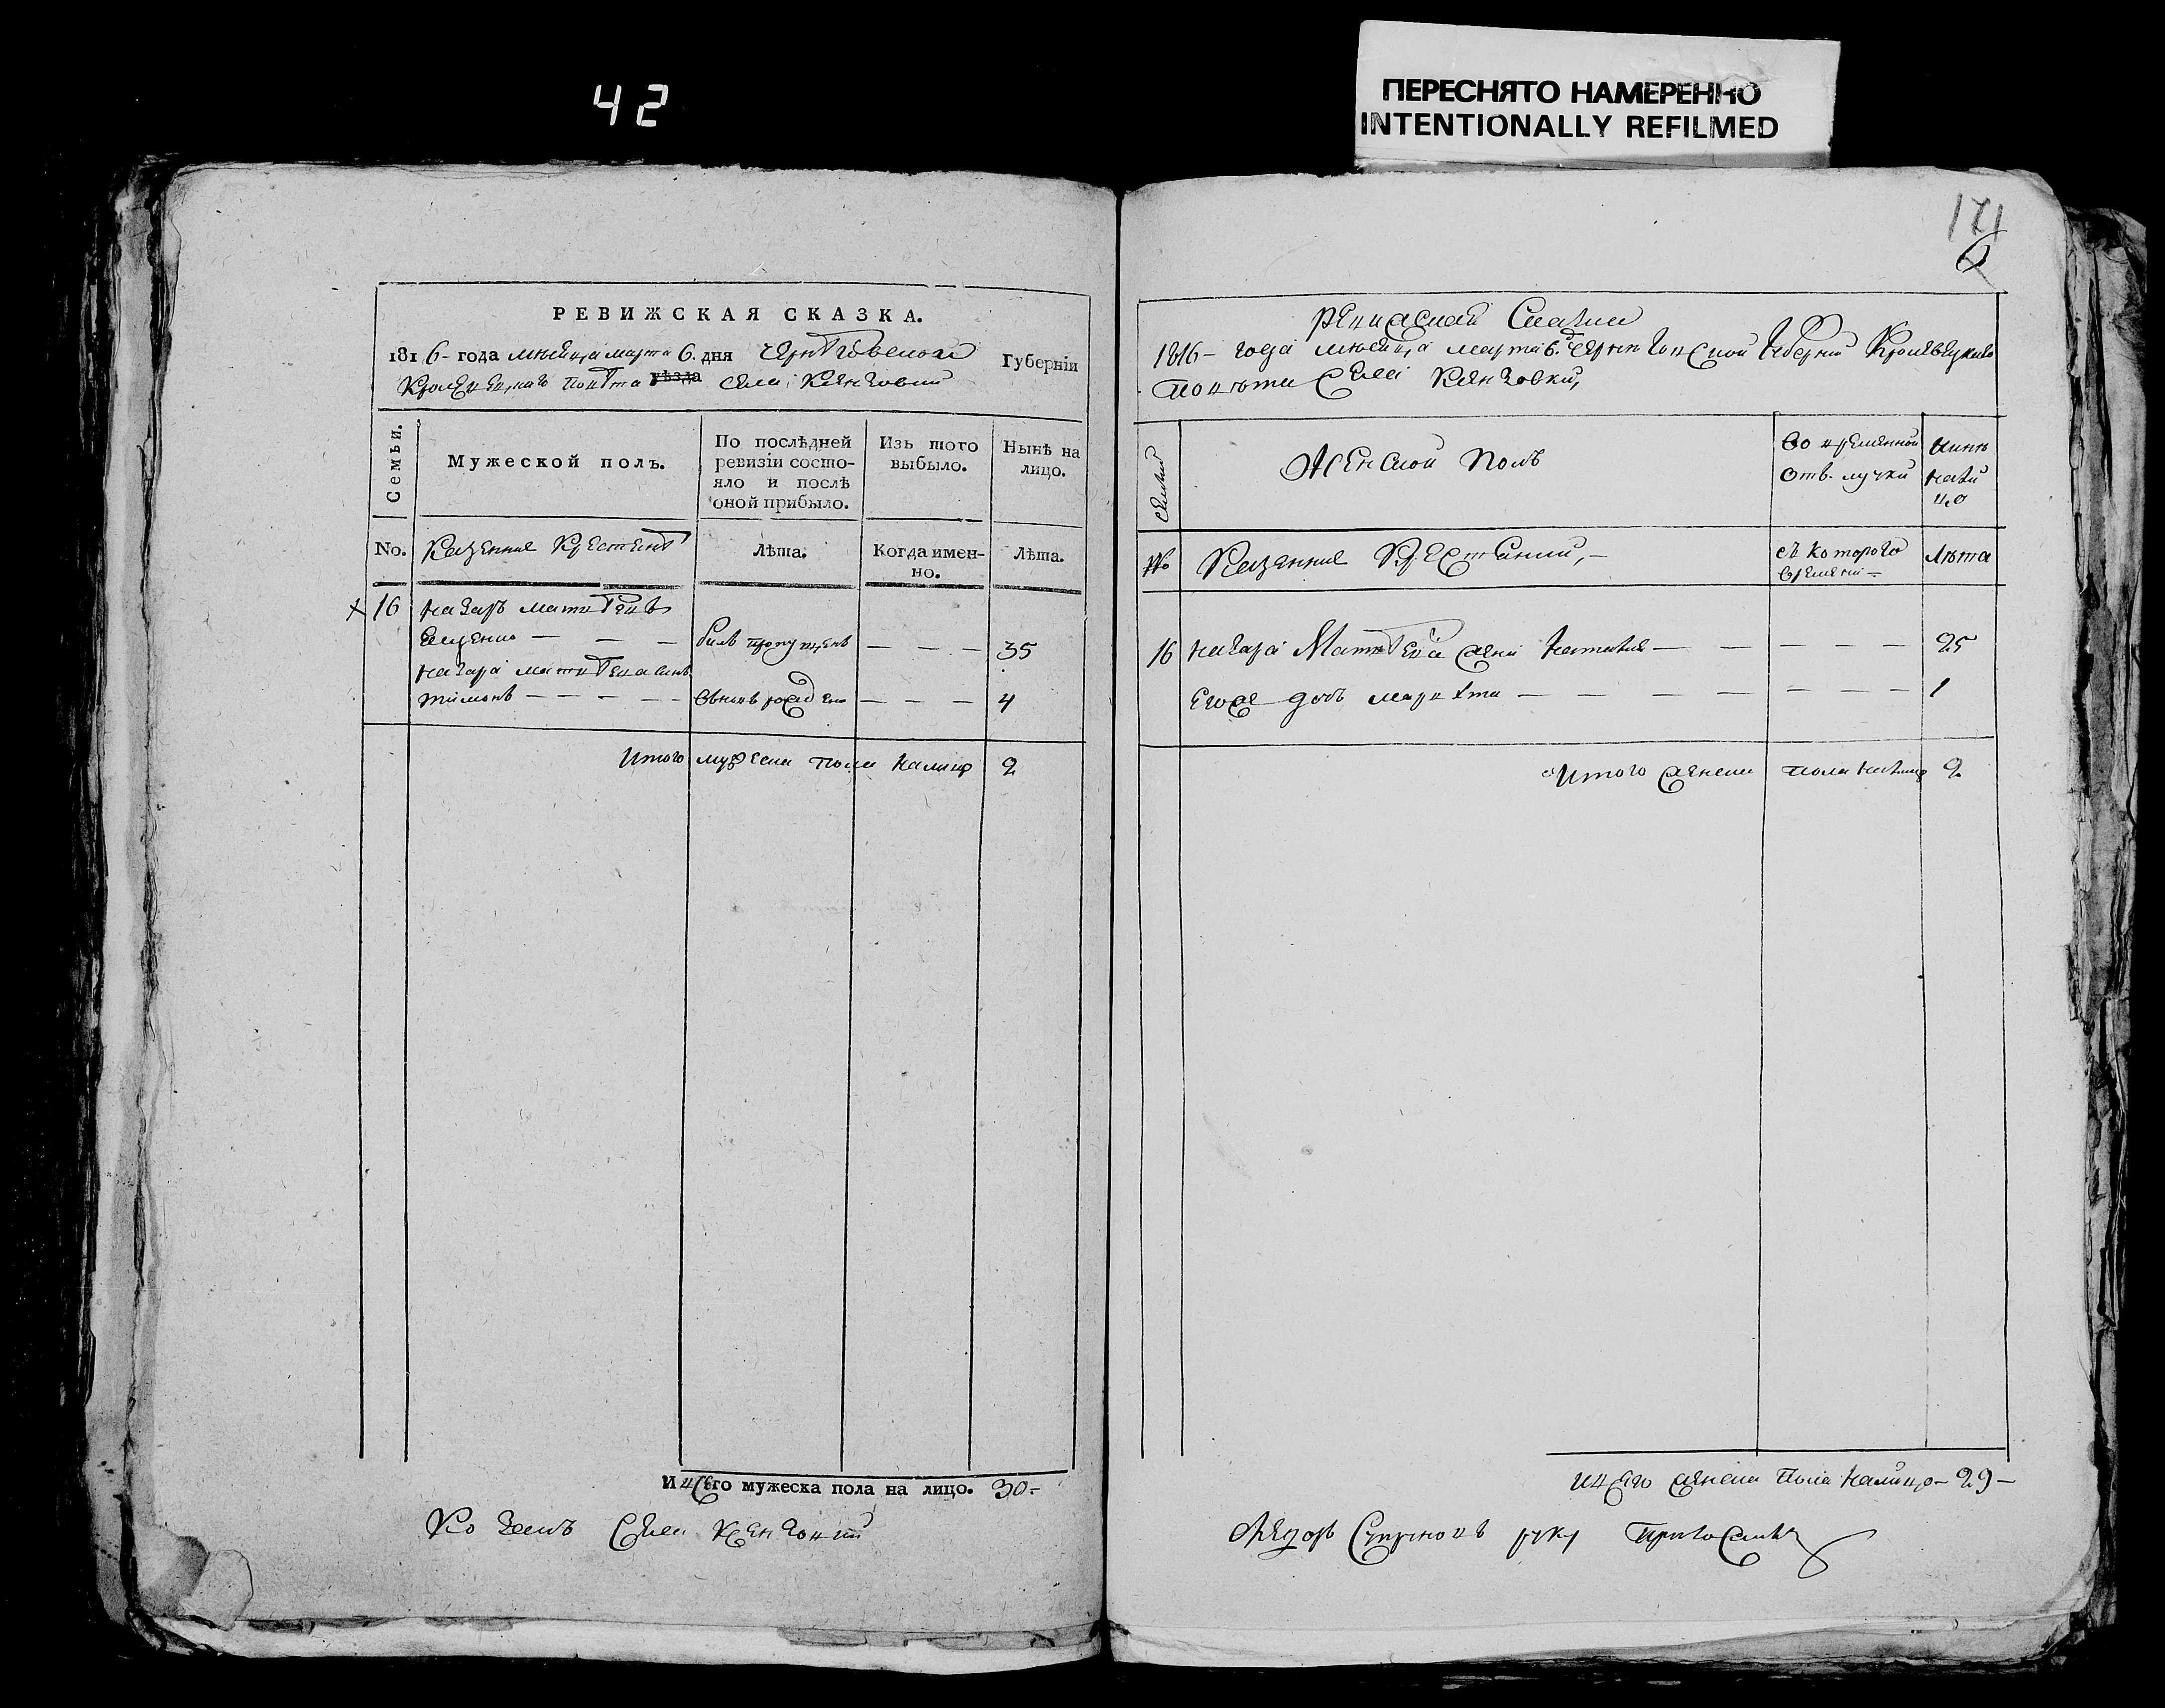 42
ПЕРЕСНЯТО НАМЕРЕННО
INTENTIONALLY REFILMED
171
6
РЕВИЖСКАЯ СКАЗКА.
1816- года мѣсяца марта 6. дня Черниговской Губерніи
Кролевецкаго повѣта уѣзда села
Семьи.
Мужеской полъ.
По послѣдней
ревизіи состо-
яло и послѣ
оной прибыло.
Изъ того
выбыло.
Нынѣ на
лицо.
No. Казенние Крестяне
Лѣта.
Когда имен-
но.
Лѣта.
16 Назаръ Матвѣевъ
билъ пропущенъ — — — 35
Назара Матвѣева синъ
Тимошъ — — — — — вновь рожденъ — — — 4
Итого мужеска пола налицо 2
И всего мужеска пола на лицо. 30-
Козакъ села
Ревижская Сказка
1816- года мѣсяца марта 6. Черниговской Губерніи Кролевецкаго
повѣта села
Семьи
Женской полъ
Во временной
отлучки
Нинѣ
нали
цо
No Казенние Крестянки,-
съ которого
времени-
Лѣта
16 Назара Матвѣева жена Наталия — — — — — — 25
Его же дочь — — — — — — — — — 1
Итого женска пола налицо 2
И всего женска пола налицо- 29-
руку приложилъ